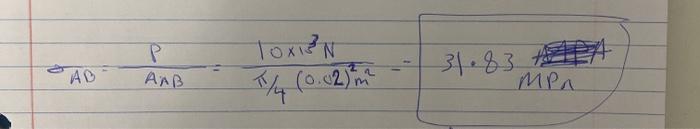 σAB = P / AAB = 10x10³ N / π/4 (0.02)² m² = 31.83
MPa